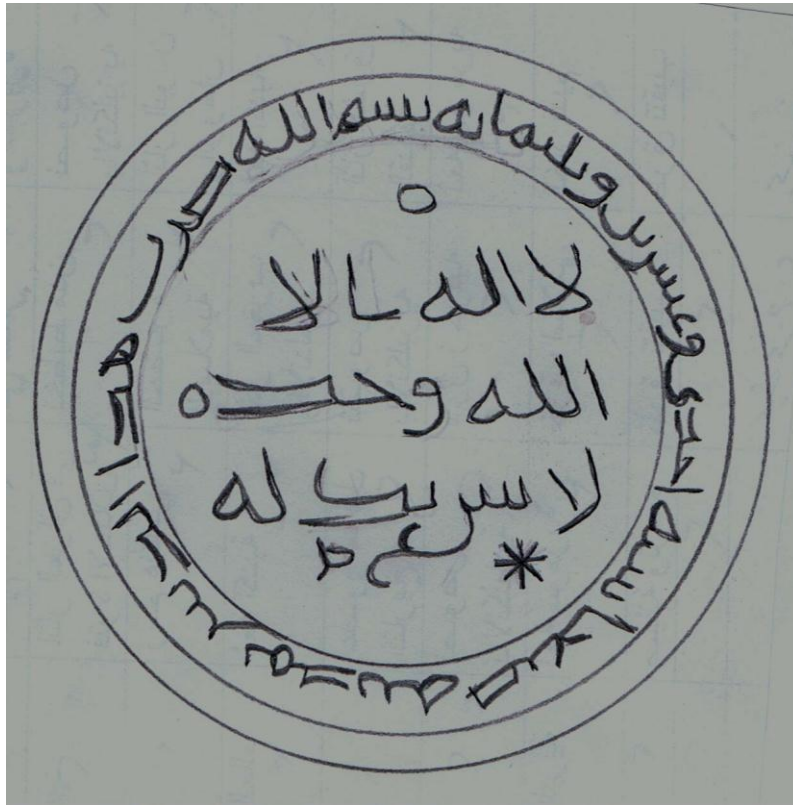 لا اله الا
الله وحده
لا شريك له
بسم الله ضرب هذا الدينر بمدينة صنعا سنة احدى وعشرين وثلثمائة